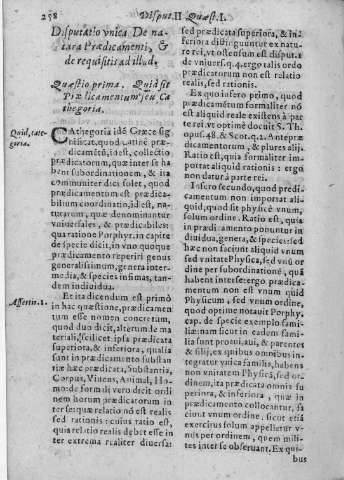 258 Disput. II Quæst. I.
Disputatio vnica. De na-
tura Prædicamenti, &
de requisitis ad illud.
Quæstio prima. Quid sit
Prædicamentum seu Ca
thegoria.
Quid, cate-
goria.
CAthegoria idẽ Græce sig
nificat, quod Latinè præ-
dicamẽtũ, id est, collectio
prædicatorum, quæ inter se ha
bent subordinationem, & ita
communiter dici solet, quod
prædicamentum est prædica-
bilium coordinatio, id est, na-
turarum, quæ denominantur
vniuersales, & prædicabiles:
qua ratione Porphyr. in capite
de specie dicit, in vno quoque
prædicamento reperiri genus
generalissimum, genera inter-
media, & species infimas, tan-
dem indiuidua.
Assertio. 1.
Et ita dicendum est primò
in hac quæstione, prædicamen
tum esse nomen concretum,
quod duo dicit, alterum de ma
teriali, scilicet ipsa prædicata
superiora, & inferiora, qualia
sant in prædicamento substan
tiæ hæc prædicata, Substantia,
Corpus, Viuens, Animal, Ho-
mo: de formali vero dicit ordi
nem horum prædicatorum in
ter se: quæ relatio nõ est realis
sed rationis cuius ratio est,
quia relatio realis debet esse in
ter extrema realiter diuersa:
sed prædicata superiora, & in-
feriora distinguuntur ex natu
re rei, vt ostensum est disputat.
de vniuers. q. 4. ergo talis ordo
prædicatorum non est relatio
realis, sed rationis.
Ex quo infero primo, quod
prædicamentum formaliter nõ
est aliquid reale existens à par
te rei. vt optimè docuit S. Th.
opus. 48. & Scot. q. 2. Antepræ
dicamentorum, & plures alij.
Ratio est, quia formaliter im-
portat ordinem rationis, & im
portat aliquid rationis: ergo
non datur à parte rei.
Infero secundo, quod prædi
camentum non importat ali-
quid, quod sit physicè vnum,
solum ordine. Ratio est, quia
in prædicamento ponuntur in
diuidua, genera, & species: sed
hæc non faciunt aliquid vnum
sed vnitate Physica, sed vnũ or
dine per subordinationẽ, quã
habent inter se: ergo prædicam
mentum non est vnum quid
Physicum, sed vnum ordine,
quod optime notauit Porphy.
cap. de specie exemplo fami-
liæ: nam sicut in eadem fami-
lia sunt proaui, aui, & parentes
& filij, ex quibus omnibus in-
tegratur vnica familia, habens
non vnitatem Physicã, sed or-
dinem, ita prædicata omnia su
periora, & inferiora, quæ in
prædicamento collocantur, fa
ciunt vnum ordine. sicut etiã
exercitus solum appellatur v-
nus per ordinem, quem mili-
tes inter se obseruant. Ex qui-
bus